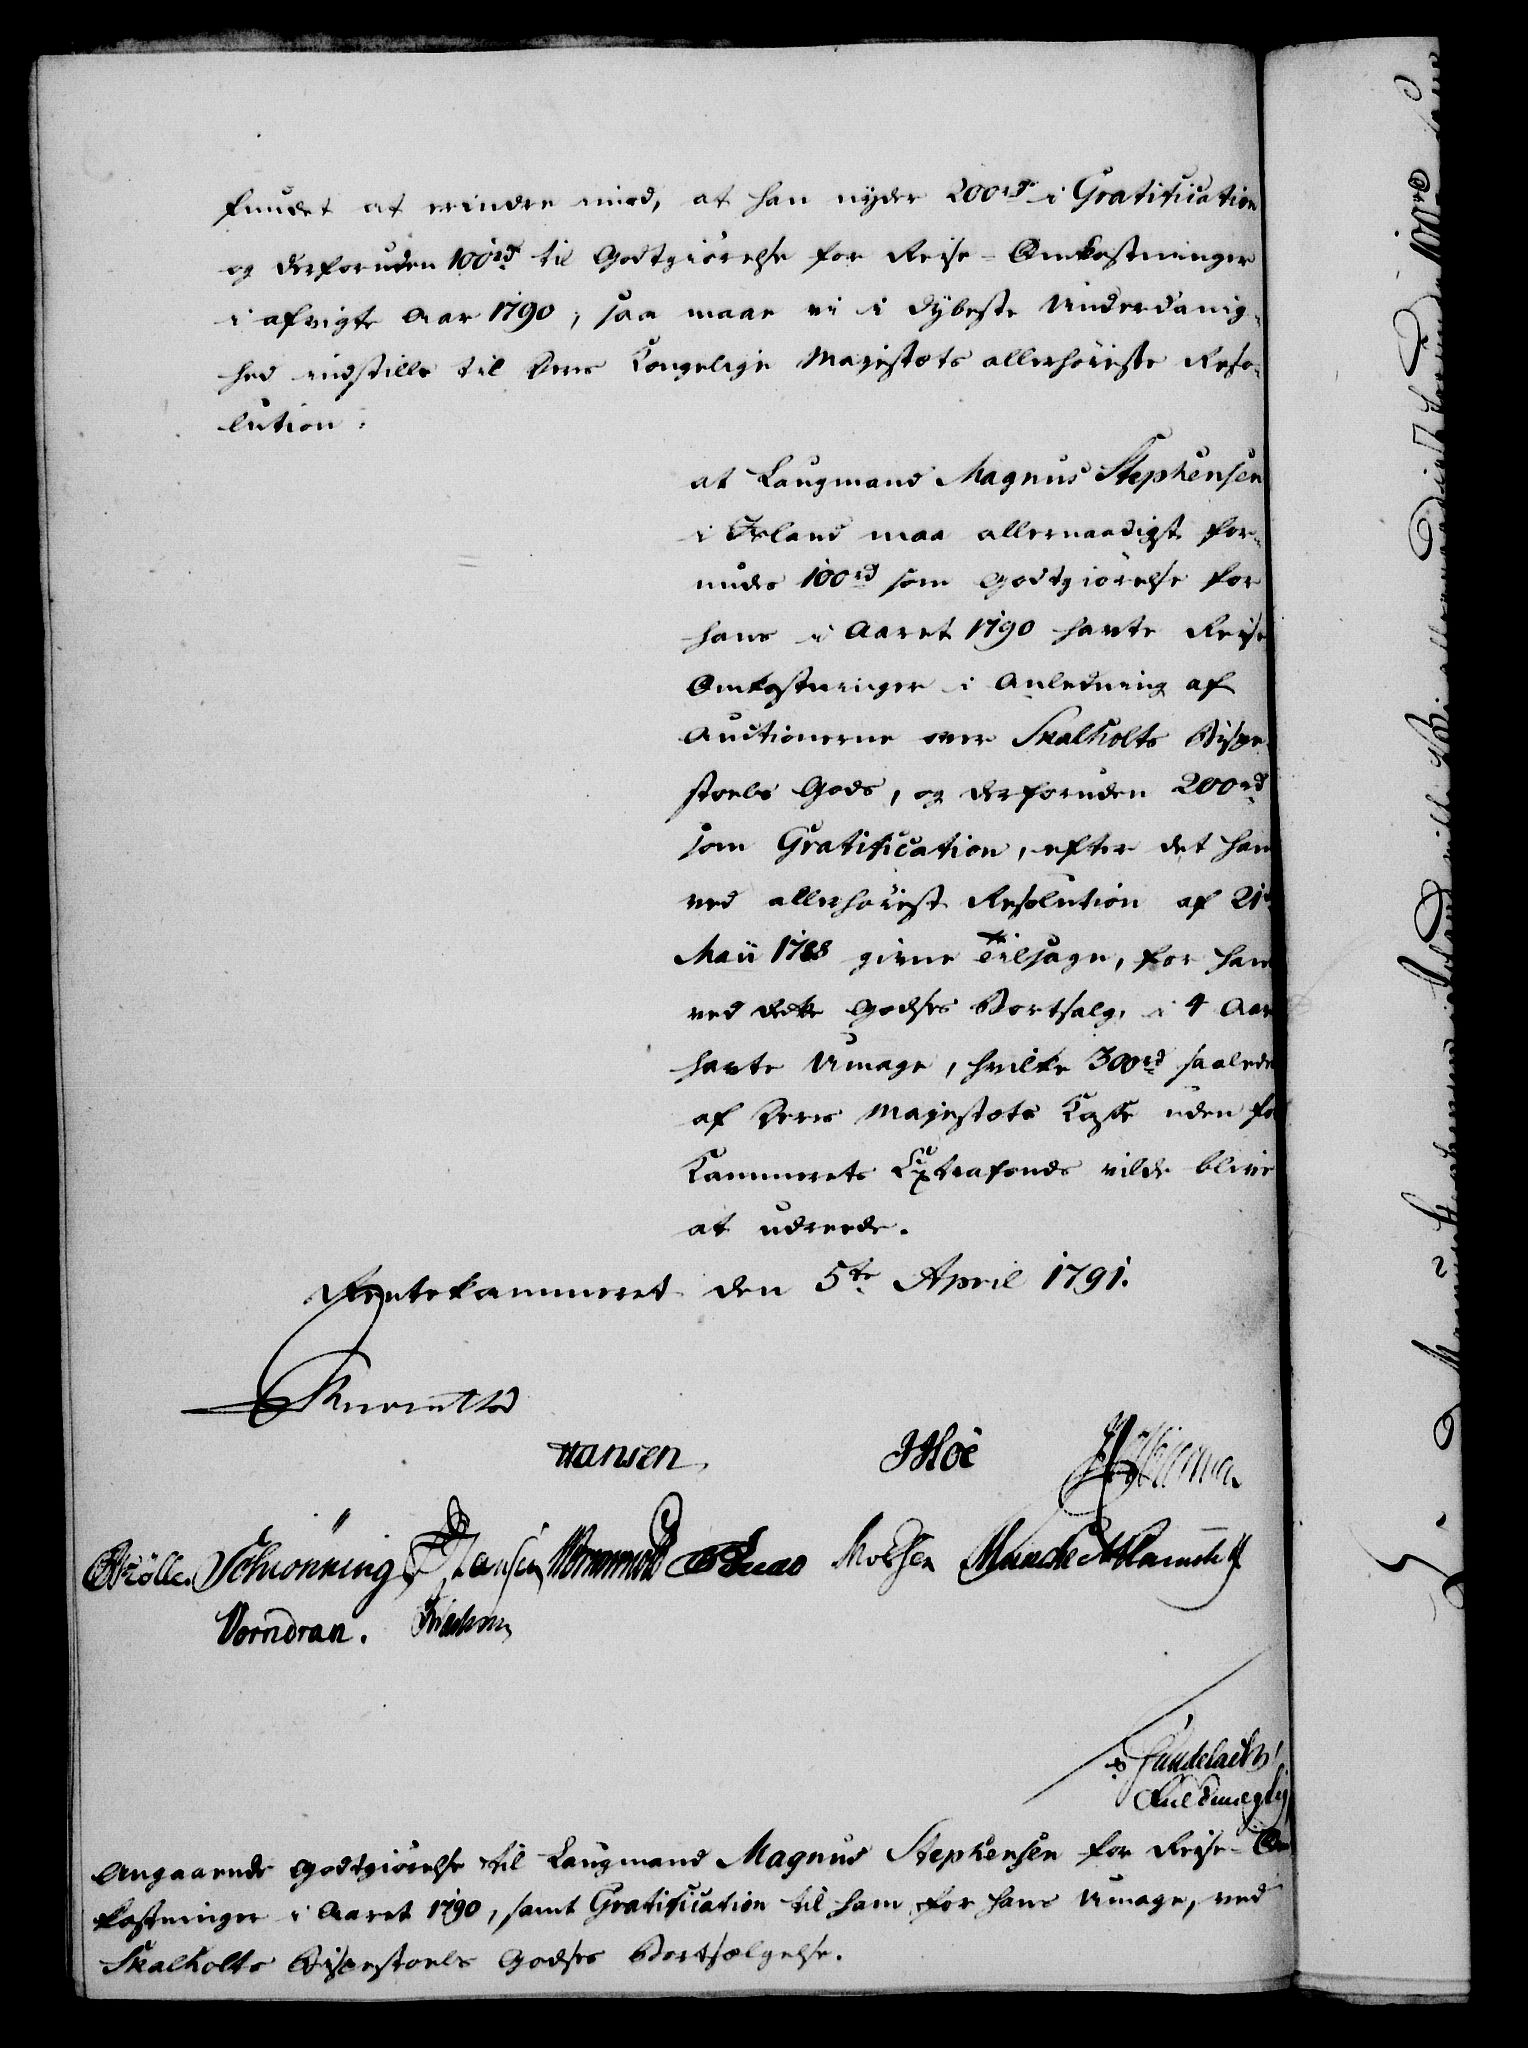 fundet at erindre mod, at han nyder 200rd i Gratification
og derforuden 100rd til Godtgiørelse for Reise-Omkostninger
i afvigte Aar 1790, saa maae vi i dybeste Underdanig-
hed indstille til Deres Kongelige Majestæts allerhøieste Reso-
lution:
at Laugmand Magnus Stephensen
i Island maa allernaadigst for-
undes 100rd som Godtgiørelse for
hans i Aaret 1790 havte Reise
Omkostninger i Anledning af
Auctionerne over Skalholts Bispe-
stoels Gods, og derforuden 200rd
som Gratification, efter det ham
ved allerhøieste Resolution af 21de
Maii 1788 givne Tilsagn, for hans
ved dette Godses Bortsalg i 4 Aar
havte Umage, hvilke 300rd saaledes
af Deres Majestæts Kasse uden for
Kammerets Extrafonds vilde blive
at udreede.
Rentekammeret den 5te April 1791.
Hansen
JHoë
Schiönning Hansen Wormskiold Munche
Vorndran.
Angaaende Godtgiørelse til Laugmand Magnus Stephensen for Reise-Om-
kostninger i Aaret 1790, samt Gratification til ham for hans Umage, ved
Skalholts Bispestoels Godses Bortsælgelse.